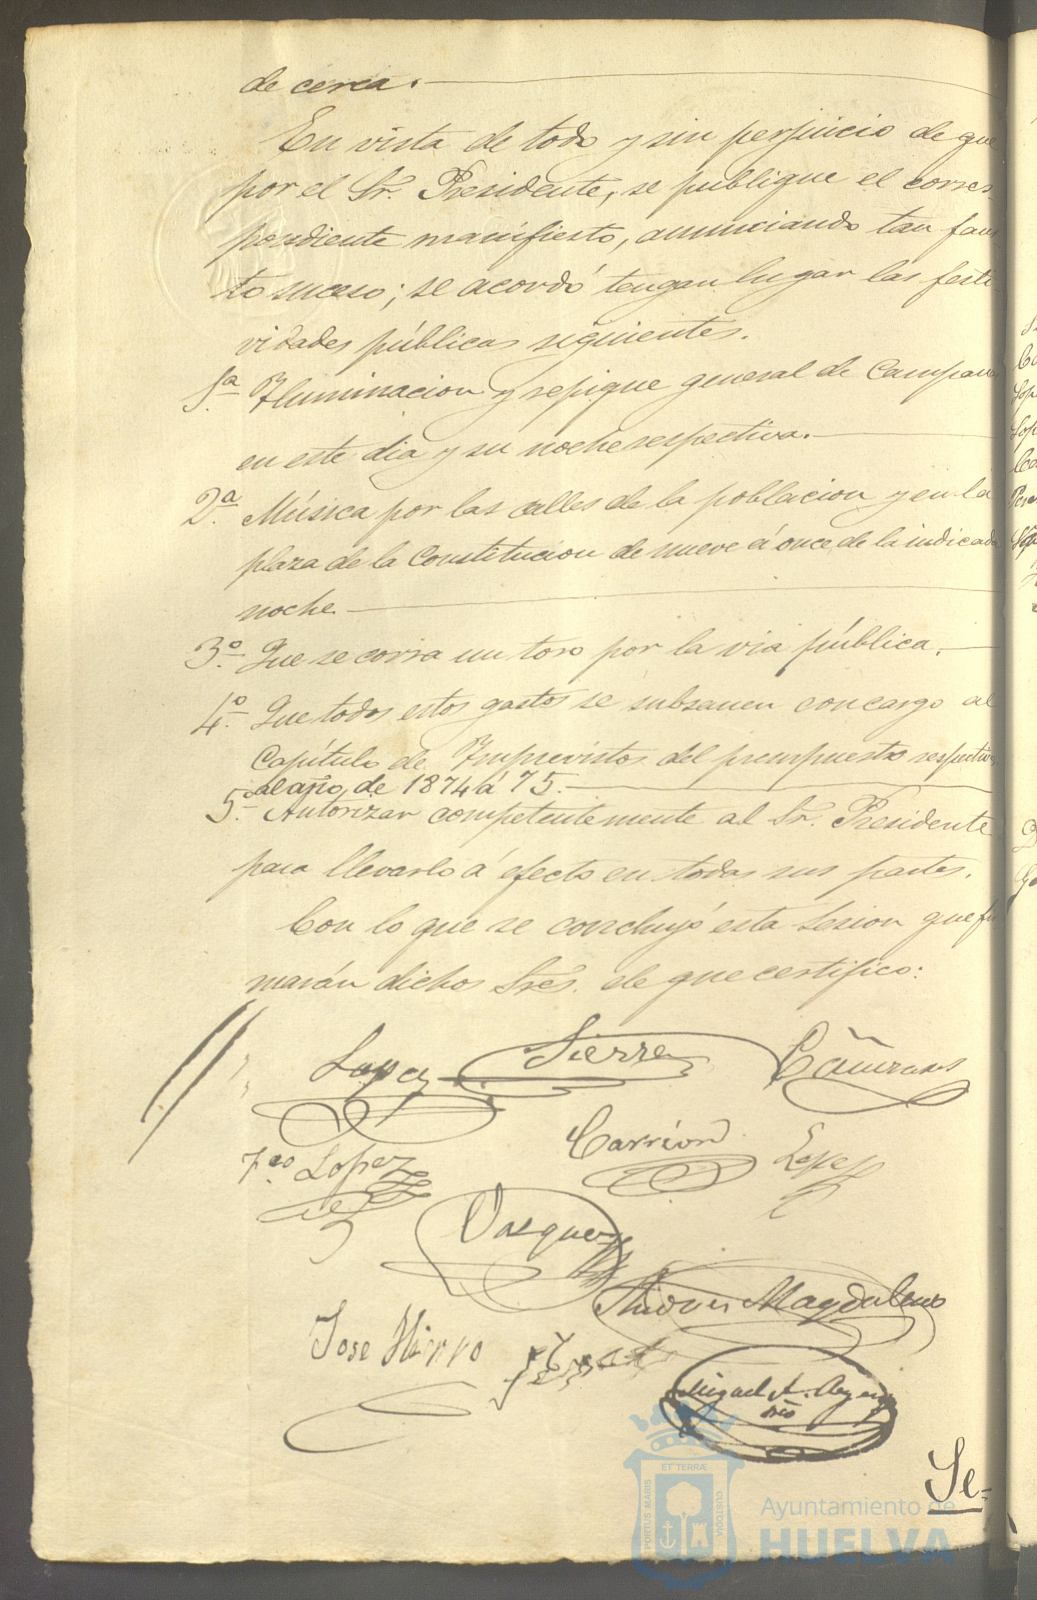 de cerca.
En vista de todo y sin perjuicio de que
por el Sr. Presidente, se publique el corres-
pondiente manifiesto, anunciando tan faus-
to suceso; se acordó tengan lugar las festi-
vidades públicas siguientes.
1.ª Iluminacion y repique general de Campanas
en este dia y su noche respectiva.
2.ª Música por las calles de la poblacion y en la
plaza de la Constitucion de nueve á once de la indicada
noche
3.º Que se corra un toro por la via pública.
4.º Que todos estos gastos se subsanen con cargo al
Capítulo de Imprevistos del presupuesto respectivo
al año de 1874 á 75.
5.º Autorizar competentemente al Sr. Presidente
para llevarlo á efecto en todas sus partes.
Con lo que se concluyó esta Sesion que fir-
marán dichos Sres. de que certifico:
Lopez Sierra
Carrion Lopez
Fco Lopez
Vazquez
Magdaleno
Jose Hierro
Miguel A.
Srio
Se-
PORTUS MARIS
ET TERRÆ
CUSTODIA
Ayuntamiento de
HUELVA